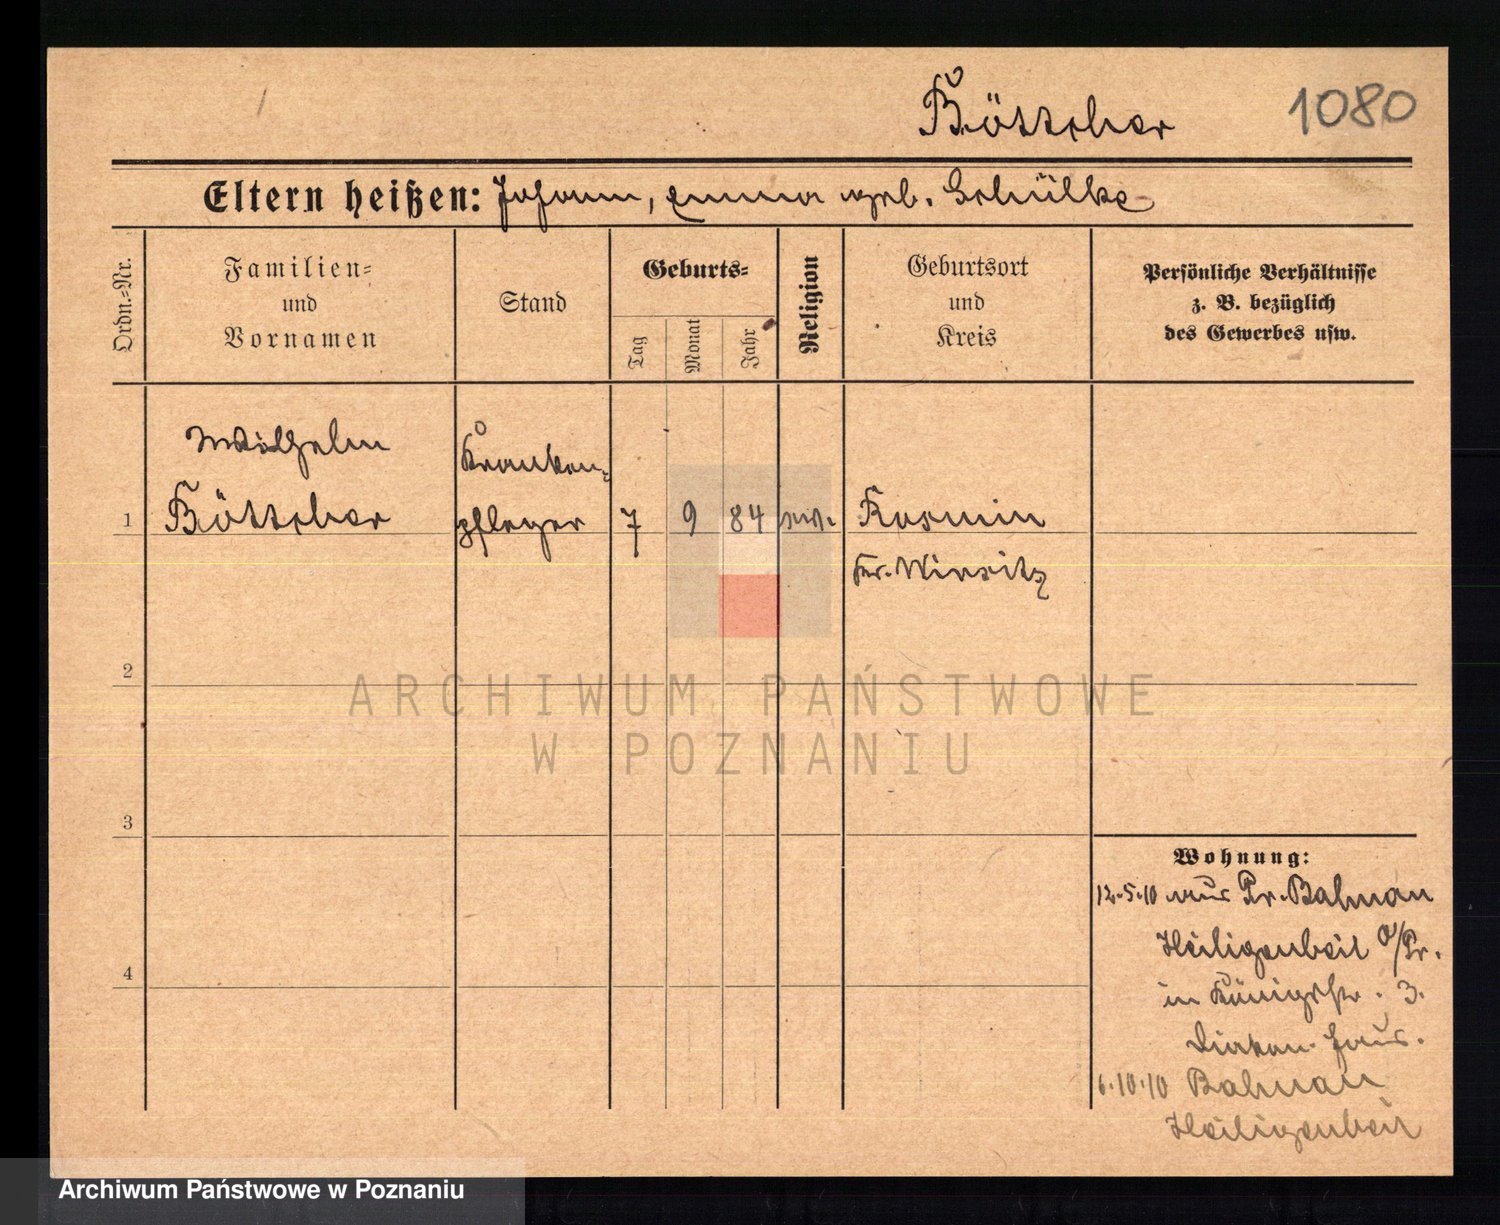 Böttcher
1080
Eltern heißen: Johann, Emma geb. Schülke
Ordn.=Nr.
Familien=
und
Vornamen
Stand
Geburts=
Tag
Monat
Jahr
Religion
Geburtsort
und
Kreis
Persönliche Verhältnisse
z. B. bezüglich
des Gewerbes usw.
Wilhelm
Böttcher
Kranken=
pfleger
1
7
9
84
ev.
Kosmin
Kr. Wirsitz
2
3
4
Wohnung:
12.5.10 aus Pr. Bahnau
Heiligenbeil O/Pr.
in Königstr. 3.
Diakon. Haus.
6.10.10 Bahnau
Heiligenbeil
ARCHIWUM PAŃSTWOWE
W POZNANIU
Archiwum Państwowe w Poznaniu